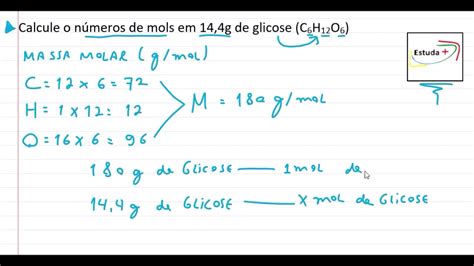 Calcule o números de mols em 14,4g de glicose (C6H12O6)
Estuda +
MASSA MOLAR (g/mol)
C = 12 x 6 = 72
H = 1 x 12 : 12
O = 16 x 6 = 96
M = 180 g/mol
180 g de GLICOSE — 1 mol de
14,4 g de GLICOSE — X mol de GLICOSE